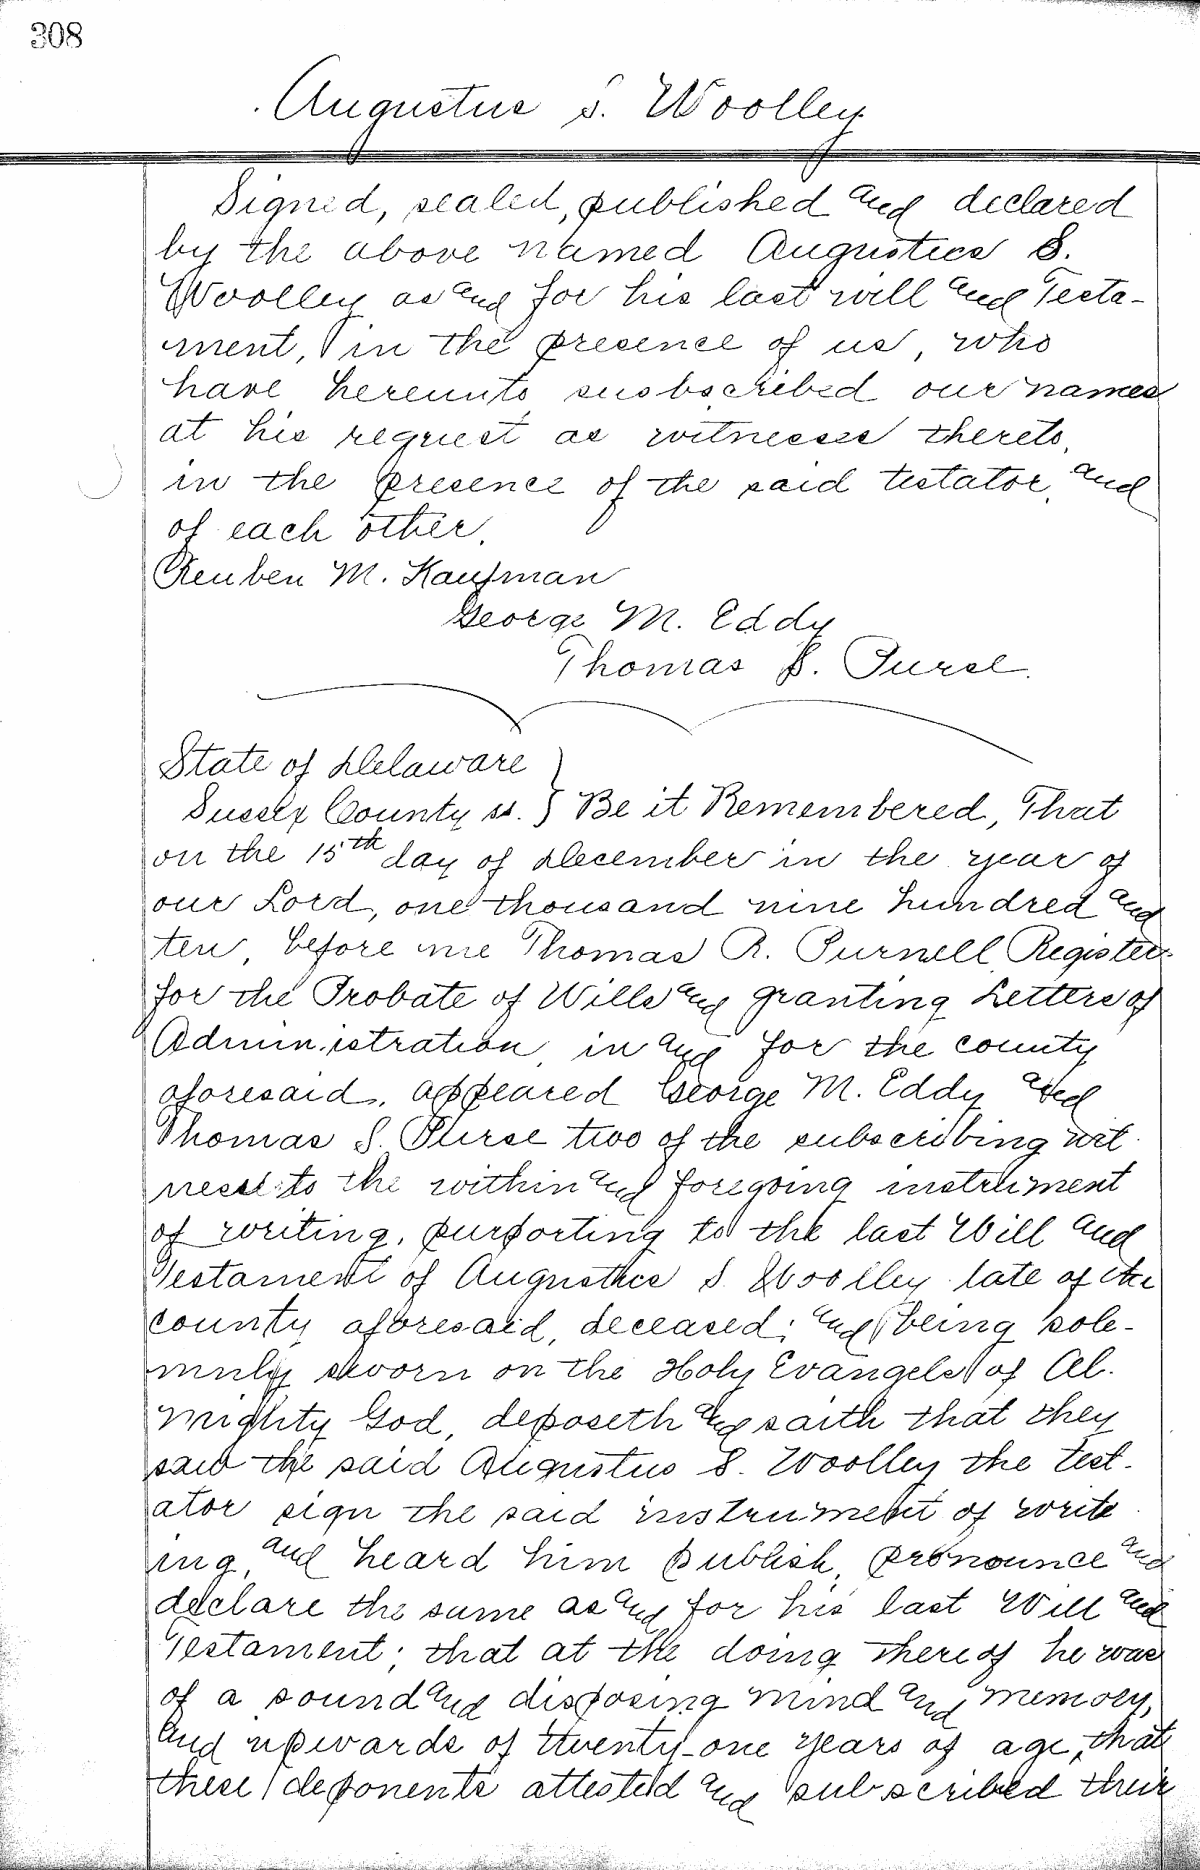 308
Augustus S. Woolley
Signed, sealed, published and declared
by the above named Augustus S.
Woolley as and for his last will and Testa-
ment, in the presence of us, who
have hereunto susbscribed our names
at his request as witnesses thereto,
in the presence of the said testator, and
of each other.
Reuben M. Kaufman
George M. Eddy
Thomas S. Purse.
State of Delaware }
Sussex County ss. } Be it Remembered, That
on the 15th day of December in the year of
our Lord, one thousand nine hundred and
ten, before me Thomas R. Purnell Register
for the Probate of Wills and granting Letters of
Administration in and for the county
aforesaid, appeared George M. Eddy and
Thomas S. Purse two of the subscribing wit-
ness to the within and foregoing instrument
of writing, purporting to the last Will and
Testament of Augustus S. Woolley late of the
county aforesaid, deceased; and being sole-
mnly sworn on the Holy Evangels of Al-
mighty God, deposeth and saith that they
saw the said Augustus S. Woolley the test-
ator sign the said instrument of writ
ing, and heard him publish, pronounce and
declare the same as and for his last Will and
Testament; that at the doing thereof he was
of a sound and disposing mind and memory,
and upwards of twenty-one years of age, that
these deponents attested and subscribed their